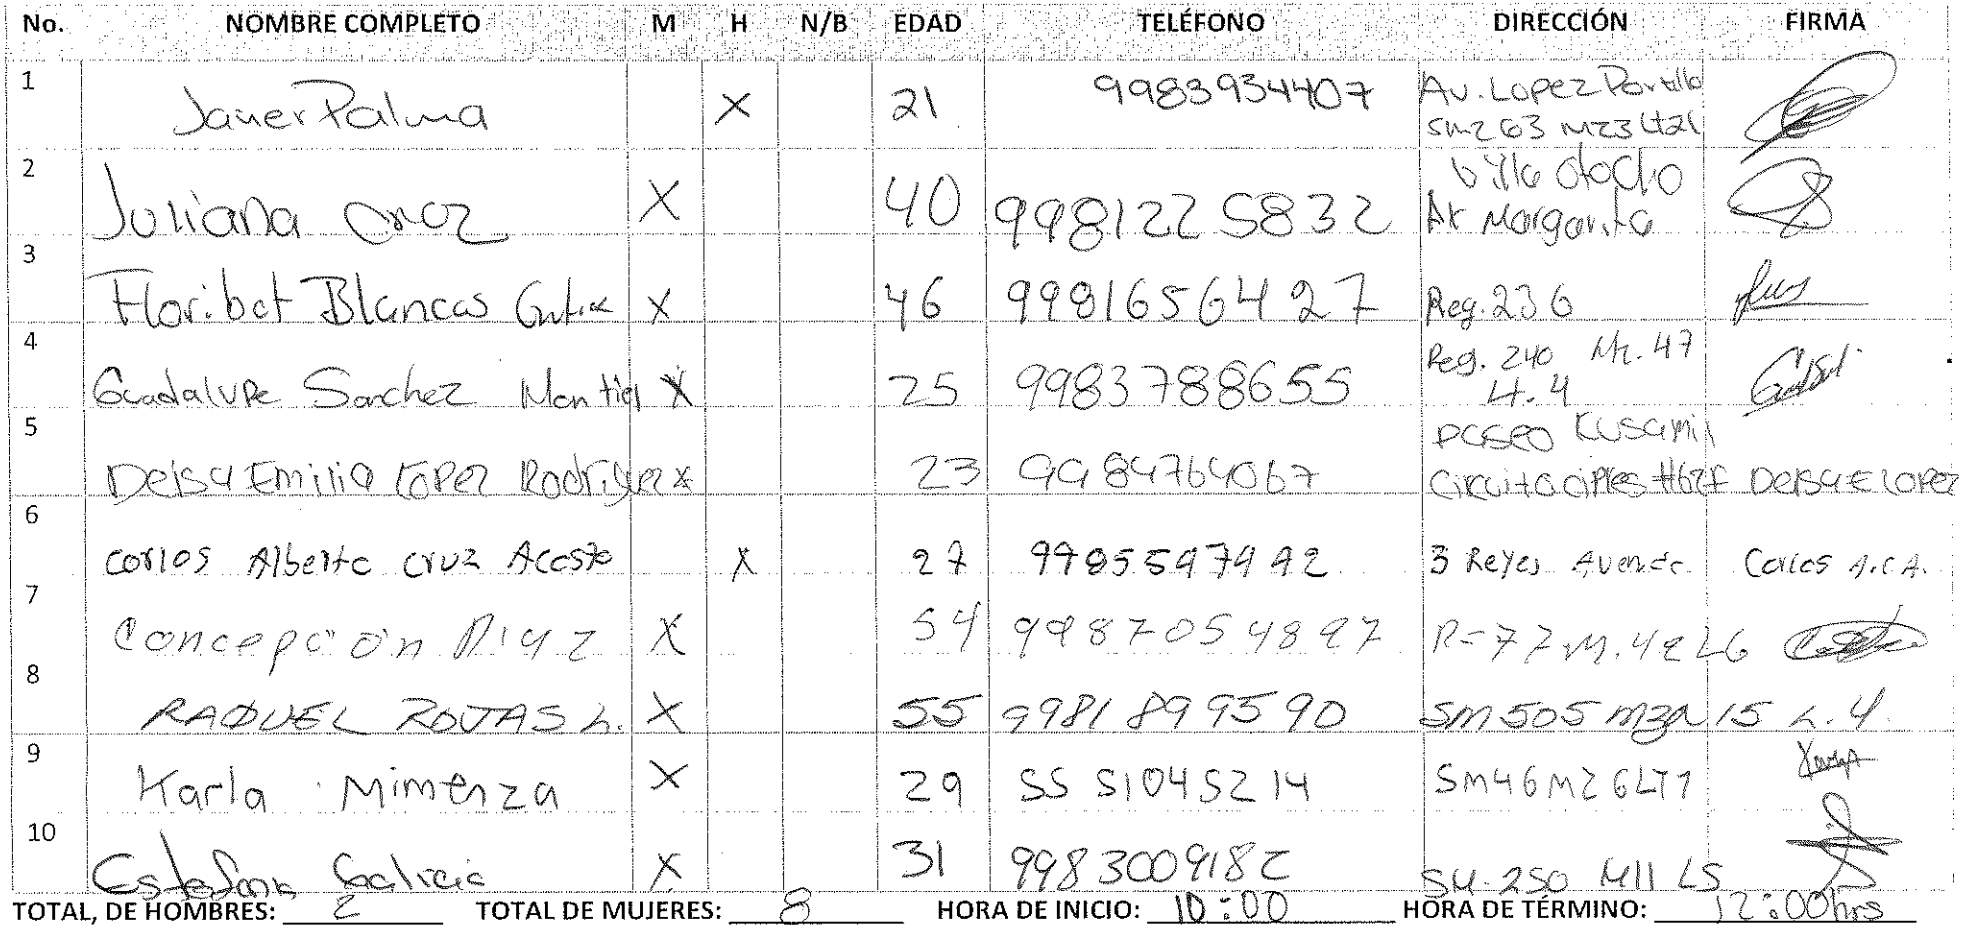 No. NOMBRE COMPLETO M H N/B EDAD TELÉFONO DIRECCIÓN FIRMA
1 Javier Palma X 21 9983934407 Av. Lopez Portillo
Smz 63 Mz3 Lt21
2 Juliana Cruz X 40 9981225832 Villa Otocho
Av Margarita
3 Floribet Blancas X 46 9981656427 Reg. 236
4 Guadalupe Sanchez Montiel X 25 9983788655 Reg. 240 Mz. 47
Lt. 4
5 Deisy Emilia Lopez Rodriguez x 23 9984764067 Paseo Kusamil
Circuito ciples Deisy E Lopez
6 Carlos Alberto Cruz Acosta X 27 9985597992 3 Reyes Carlos A.C.A.
7 Concepción Diaz X 54 9987054897 R=77 M.42 L6
8 RAQUEL ROJAS L. X 55 9981899590 SM 505 mza 15 L.4.
9 Karla Mimenza X 29 55 51045214 Sm46 Mz6 LT1
10 Estefania Galicia X 31 9983009182 SM-250 M11 L5
TOTAL, DE HOMBRES: 2 TOTAL DE MUJERES: 8 HORA DE INICIO: 10:00 HORA DE TÉRMINO: 12:00hrs